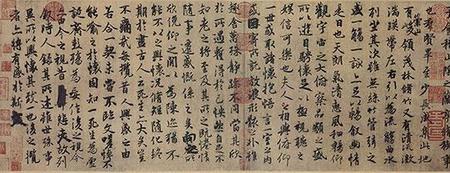 也群賢畢至少長咸集此地
有崇山峻領茂林脩竹又有清流激
湍暎帶左右引以為流觴曲水
列坐其次雖無絲竹管弦之
盛一觴一詠亦足以暢敘幽情
是日也天朗氣清惠風和暢仰
觀宇宙之大俯察品類之盛
所以遊目騁懷足以極視聽之
娛信可樂也夫人之相與俯仰
一世或取諸懷抱悟言一室之內
或因寄所託放浪形骸之外雖
趣舍萬殊靜躁不同當其欣
於所遇暫得於己怏然自足不
知老之將至及其所之既惓情
隨事遷感慨係之矣向之所
欣俛仰之閒以為陳跡猶不
能不以之興懷況脩短隨化終
期於盡古人云死生亦大矣豈
不痛哉每攬昔人興感之由
若合一契未嘗不臨文嗟悼不
能喻之於懷固知一死生為虛
誕齊彭殤為妄作後之視今
亦由今之視昔悲夫故列
敘時人錄其所述雖世殊事
異所以興懷其致一也後之攬
者亦將有感於斯